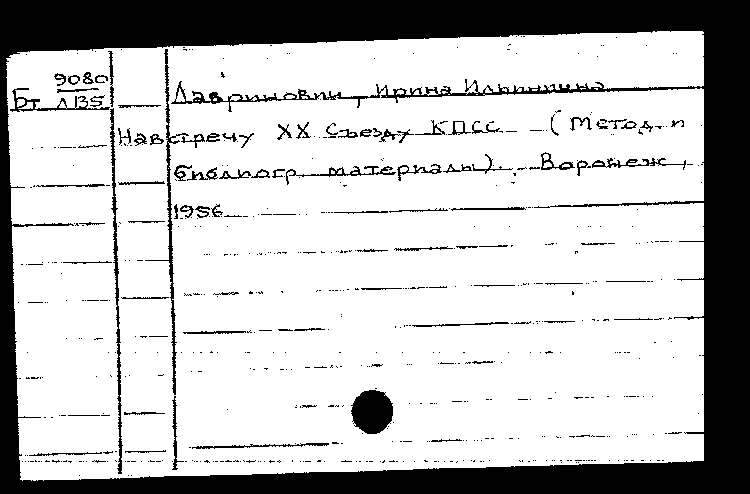 9080
Бт Л135
Лавринович, Ирина Ильинична
Навстречу XX Съезду КПСС (Метод. и
библиогр. материалы). Воронеж,
1956